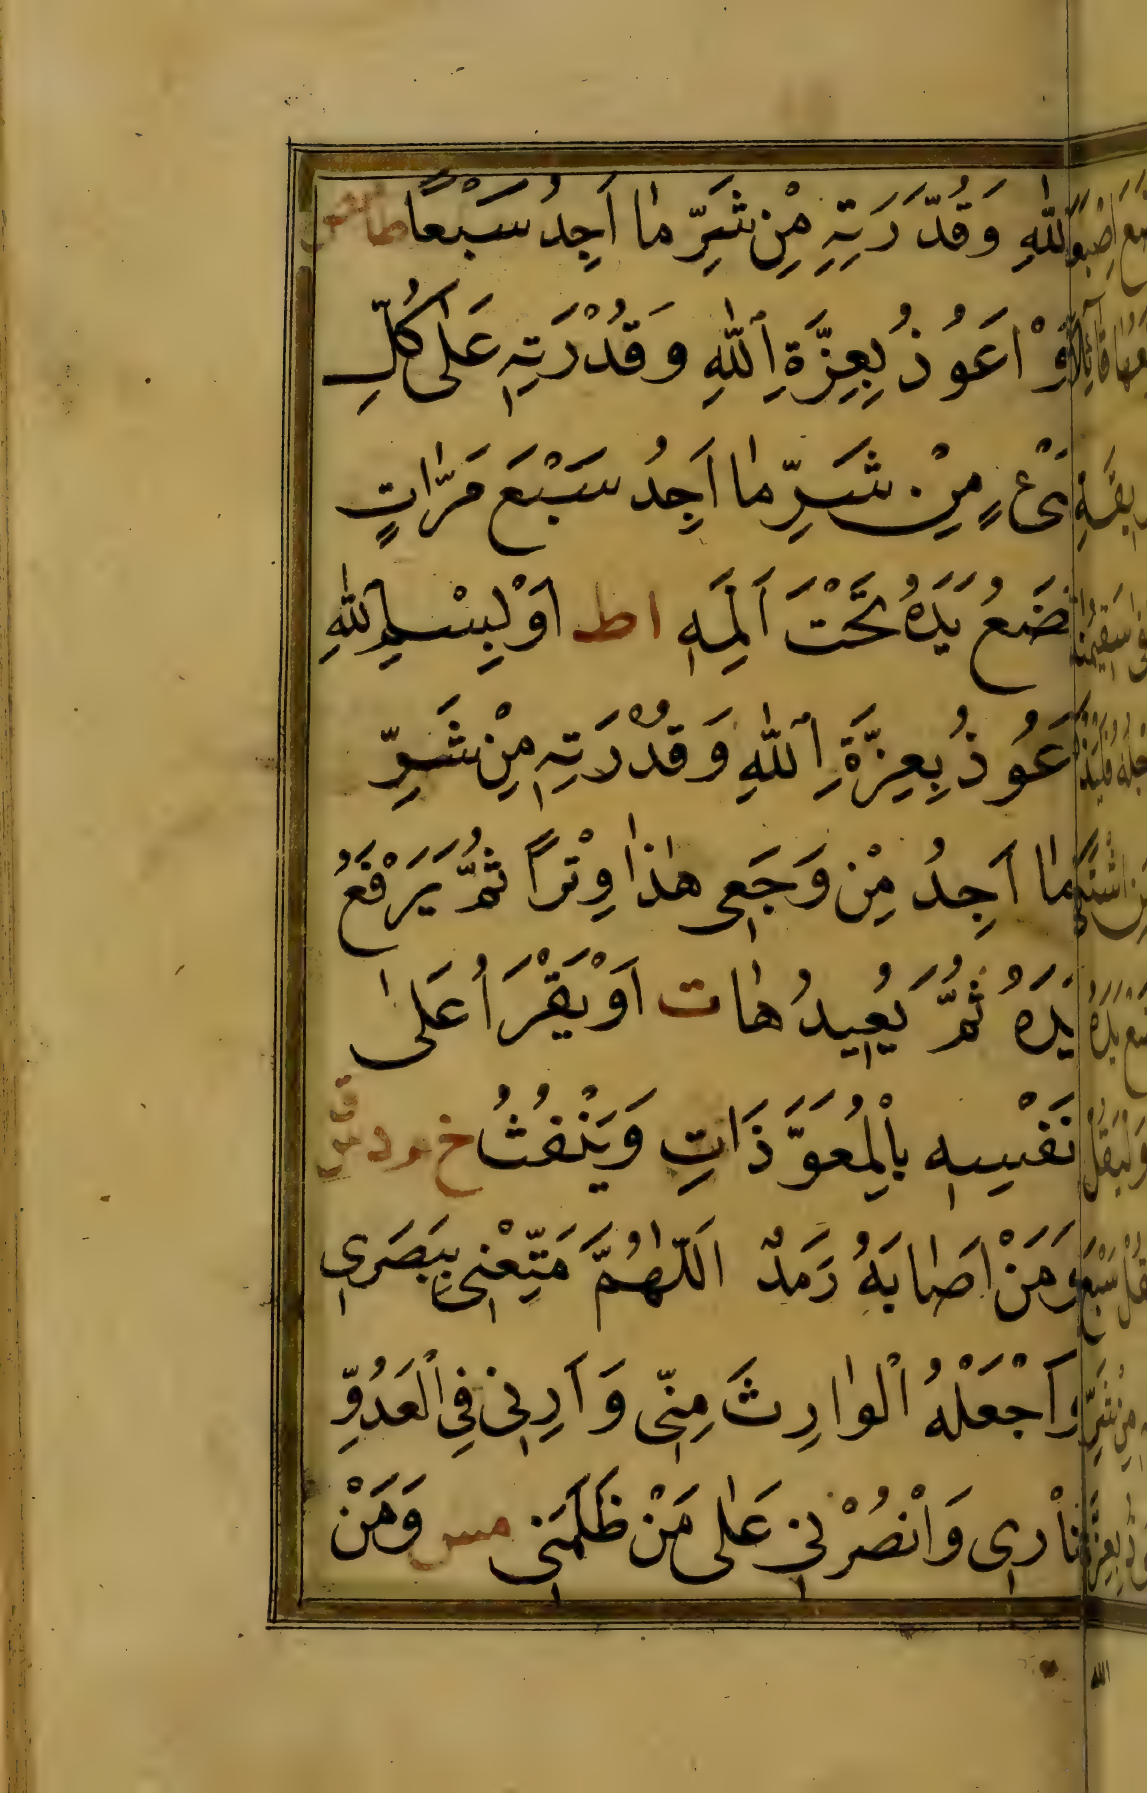 للّٰهِ وَقُدْرَتِهِ مِنْ شَرِّ مٰا اَجِدُ سَبْعًا
اَوْ اَعُوذُ بِعِزَّةِ اللّٰهِ وَقُدْرَتِهِ عَلٰى كُلِّ
شَىْءٍ مِنْ شَرِّ مٰا اَجِدُ سَبْعَ مَرّٰاتٍ
يَضَعُ يَدَهُ تَحْتَ اَلَمِهِ اط اَوْ لِبِسْمِ اللّٰهِ
اَعُوذُ بِعِزَّةِ اللّٰهِ وَقُدْرَتِهِ مِنْ شَرِّ
مٰا اَجِدُ مِنْ وَجَعِى هٰذٰا وِتْرًا ثُمَّ يَرْفَعُ
يَدَهُ ثُمَّ يُعِيدُهٰا ت اَوْ يَقْرَأُ عَلٰى
نَفْسِهِ بِالْمُعَوَّذَاتِ وَيَنْفُثُ خ م د س ق
وَمَنْ اَصٰابَهُ رَمَدٌ اَللّٰهُمَّ مَتِّعْنِى بِبَصَرِى
وَاجْعَلْهُ الْوٰارِثَ مِنِّى وَاَرِنِى فِى الْعَدُوِّ
ثَاْرِى وَانْصُرْنِى عَلٰى مَنْ ظَلَمَنِى مس وَمَنْ